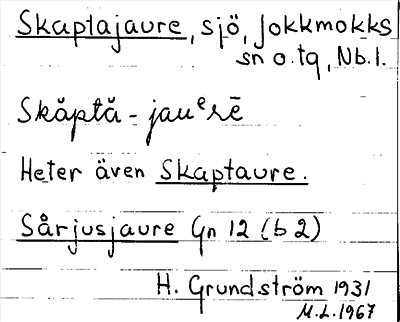 Skaptajaure, sjö, Jokkmokks
sn o. tg, Nb. l.
Skåptå-jauᵉrē
Heter även Skaptaure.
Sårjusjaure Gn 12 (b 2)
H. Grundström 1931
M.L. 1967